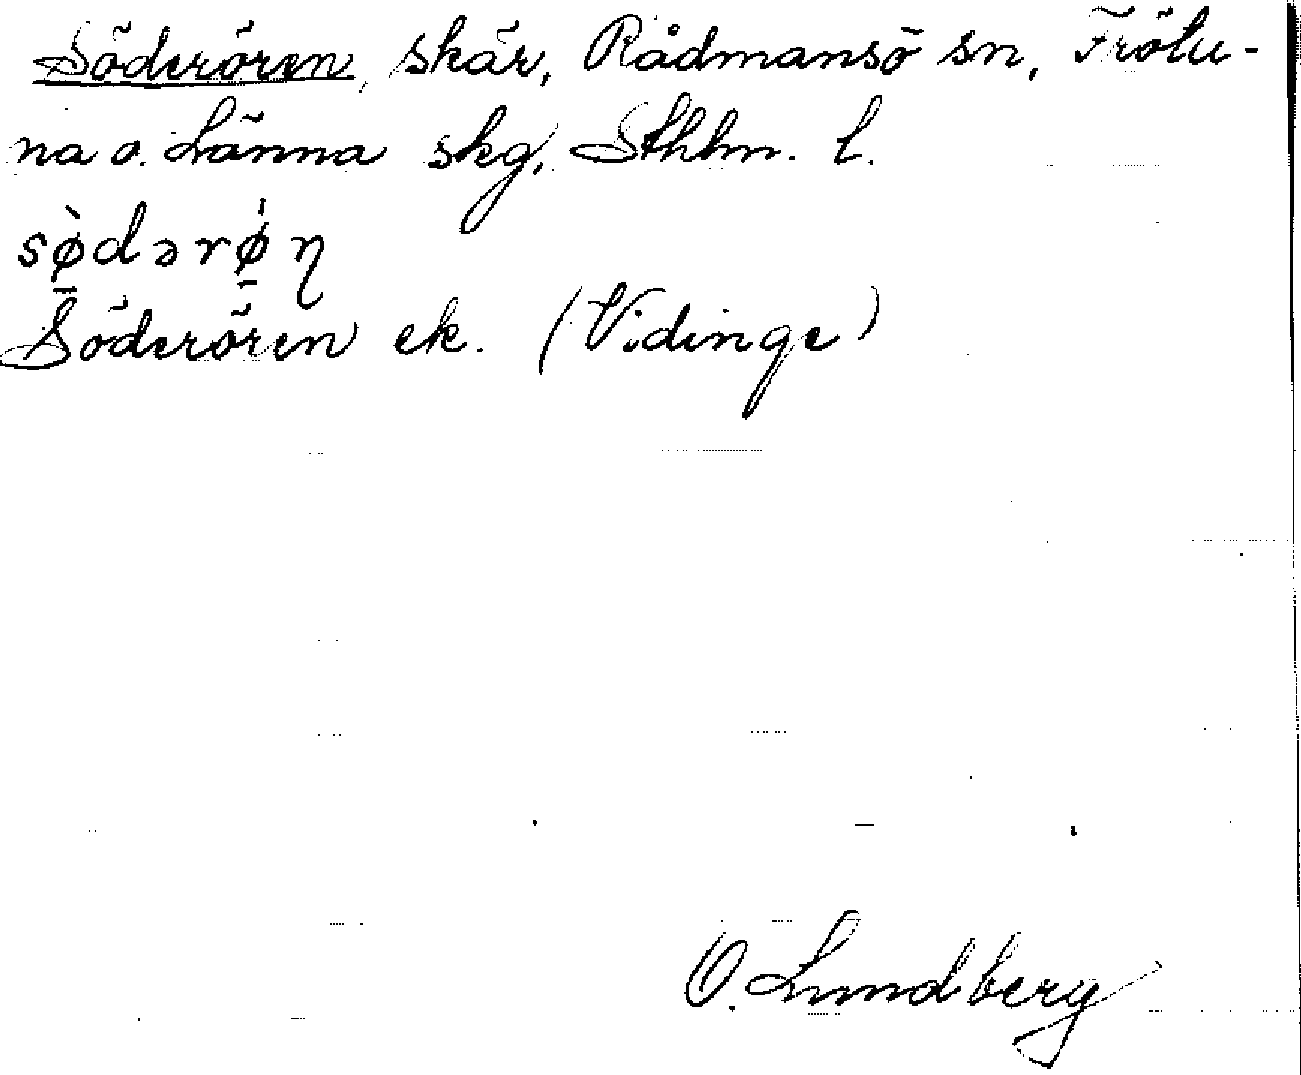 Söderören, skär, Rådmansö sn, Frötu-
na o. Länna skg, Sthlm. l.
sø̀dərø̇ŋ
Söderören ek. (Vidinge)
O. Lundberg